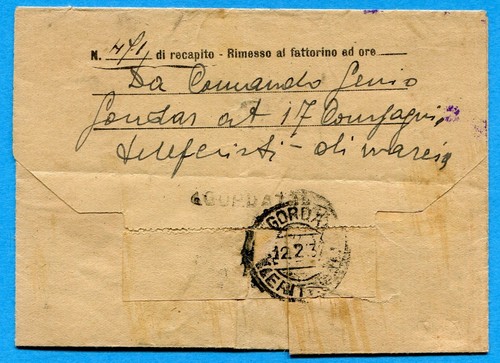 N. 471, di recapito - Rimesso al fattorino ad ore
Da Comando Genio
Gondar at 17 Compagnia
teleferisti - di marcia
AGORDAT
AGORDAT
12.2.3
ERITREA